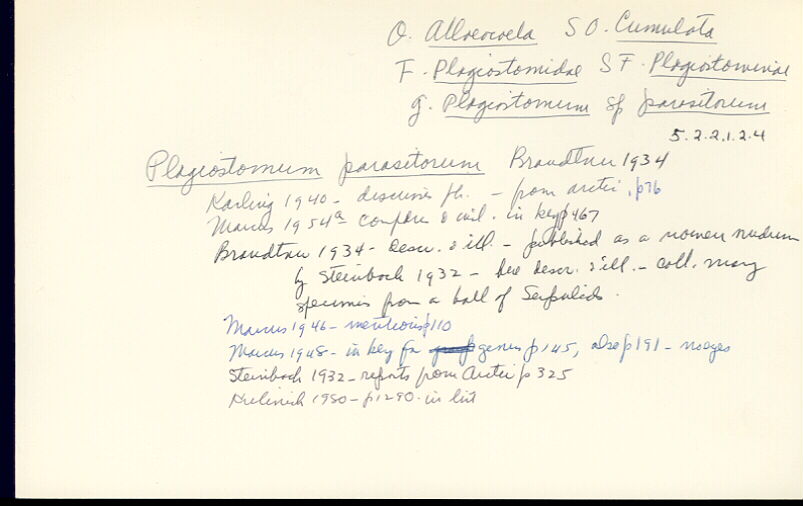 O. Alloeocoela SO. Cumulata
F. Plagiostomidae SF. Plagiostominae
g. Plagiostomum sp parasitorum
5.2.2.1.2.4
Plagiostomum parasitorum Brandtner 1934
Karling 1940 - discusses ph. - from arctic, p76
Marcus 1954a - compare & ill. in key p467
Brandtner 1934 - descr. & ill. - published as a nomen nudum
by Steinbock 1932 - here descr. & ill. - coll. many
specimens from a ball of Serpulids.
Marcus 1946 - mentions p110
Marcus 1948 - in key for genus p145, also p191 - no eyes
Steinbock 1932 - reports from Arctic p325
1950 - p1290. in list